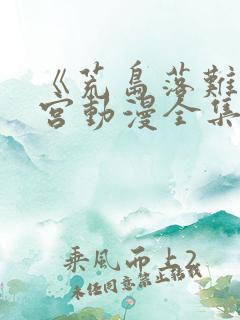 《荒島落難
宮動漫全集
乘風而上2
未任同意禁止轉載